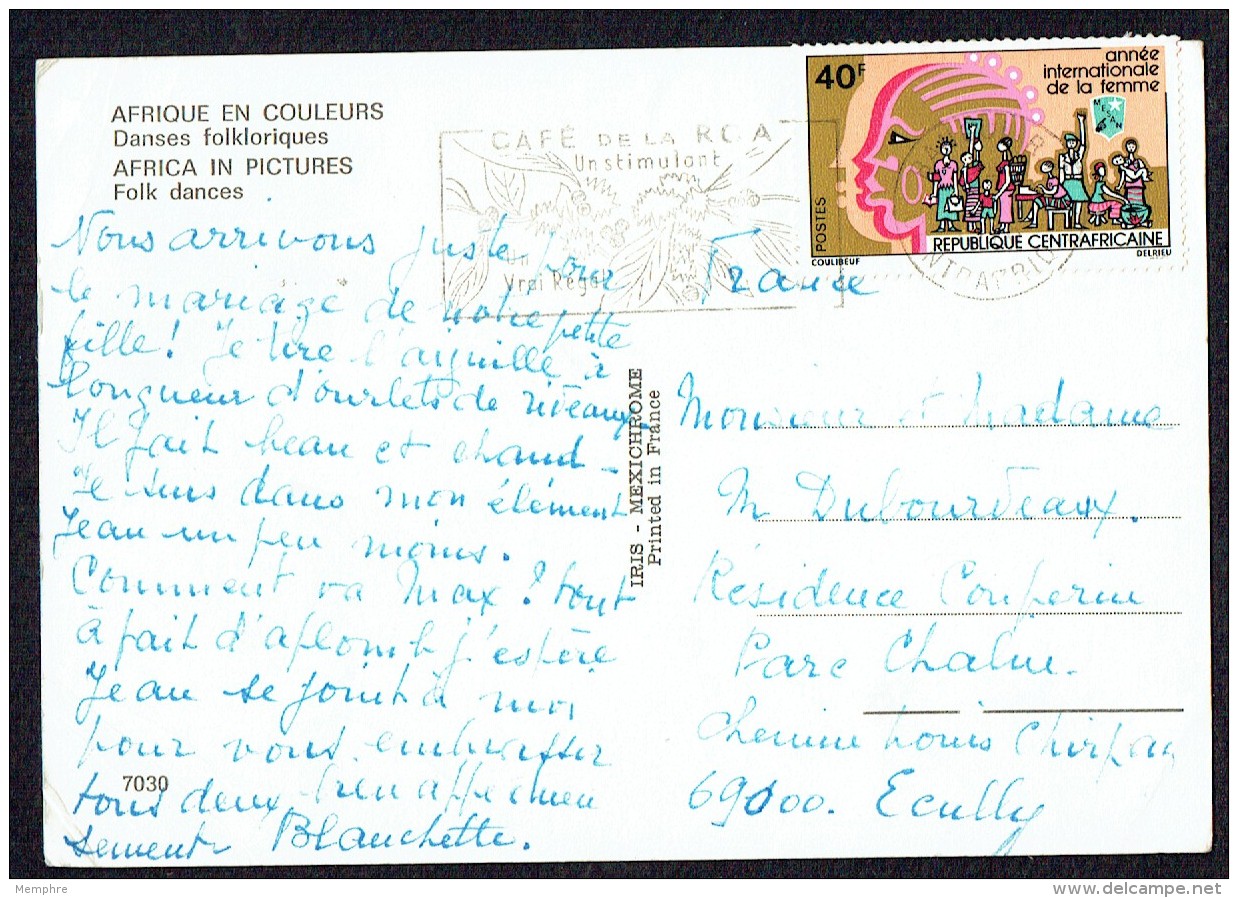 AFRIQUE EN COULEURS
Danses folkloriques
AFRICA IN PICTURES
Folk dances
CAFÉ DE LA RCA
Un stimulant
Un
Vrai Régal
40F
année
internationale
de la femme
MESAN
POSTES
REPUBLIQUE CENTRAFRICAINE
COULIBEUF
DELRIEU
Nous arrivons juste pour
le mariage de notre petite
fille! Je tire l'aiguille à
longueur d'ourlets de rideaux
Il fait beau et chaud -
Je suis dans mon élément
Jean un peu moins.
Comment va Max? tout
à fait d'aplomb j'espère
Jean se joint à moi
pour vous embrasser
tous deux bien affectueu
sement
Blanchette.
7030
IRIS - MEXICHROME
Printed in France
France
Monsieur et Madame
M Dubourdeaux.
Résidence Couperin
Parc
Chemin Louis
69100. Ecully
Memphre
delcampe.net